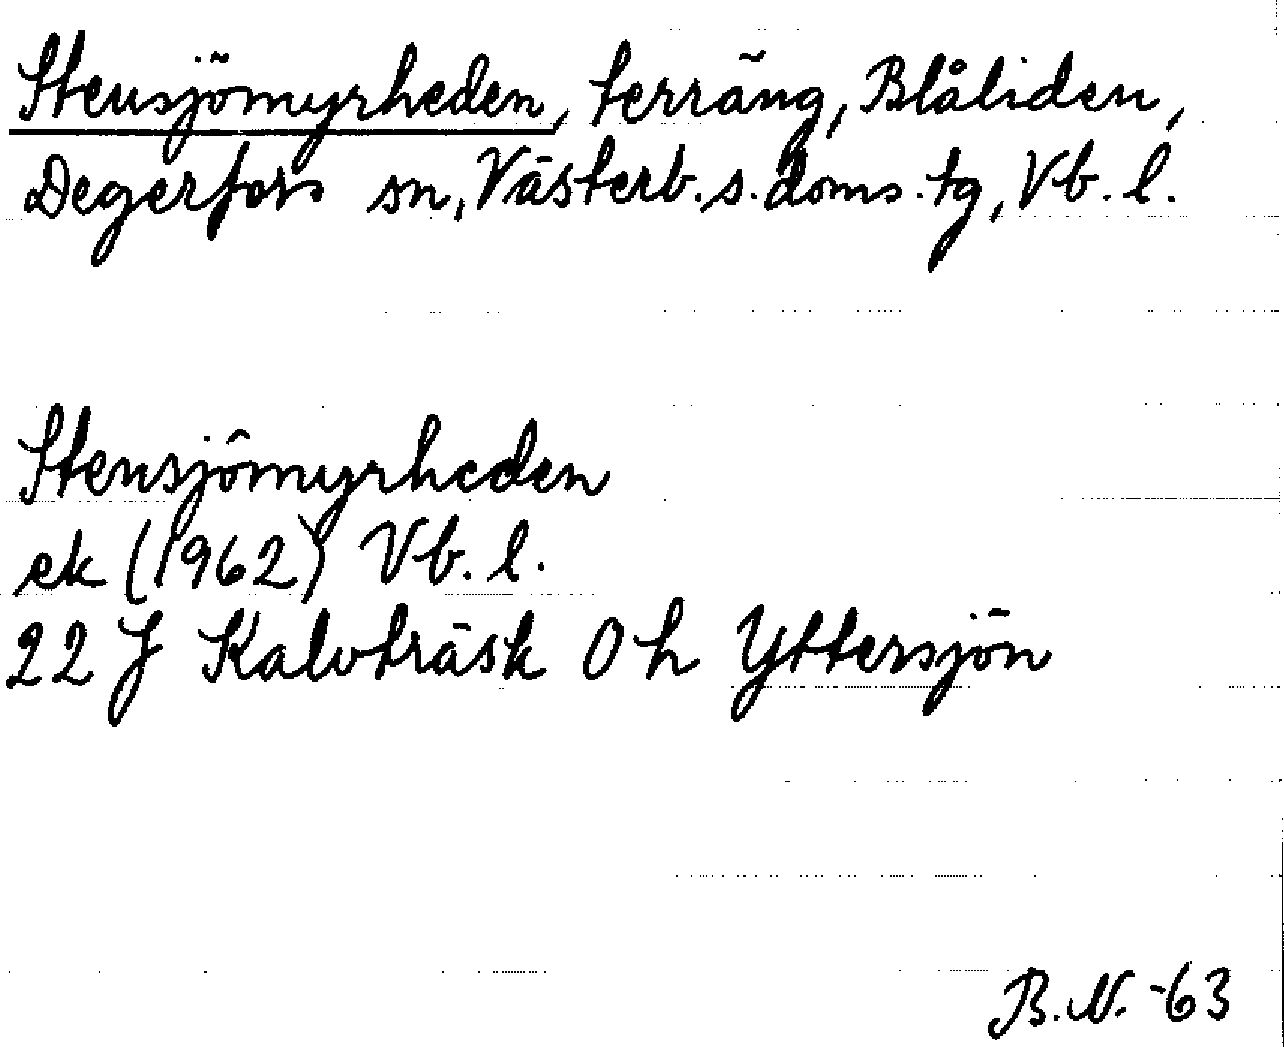 Stensjömyrheden, terräng, Blåliden,
Degerfors sn, Västerb. s. doms. tg, Vb. l.
Stensjömyrheden
ek (1962) Vb. l.
22 J Kalvträsk 0 h Yttersjön
B.N. -63